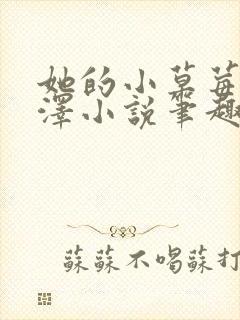 她的小草莓
澤小說筆趣
蘇蘇不喝蘇打